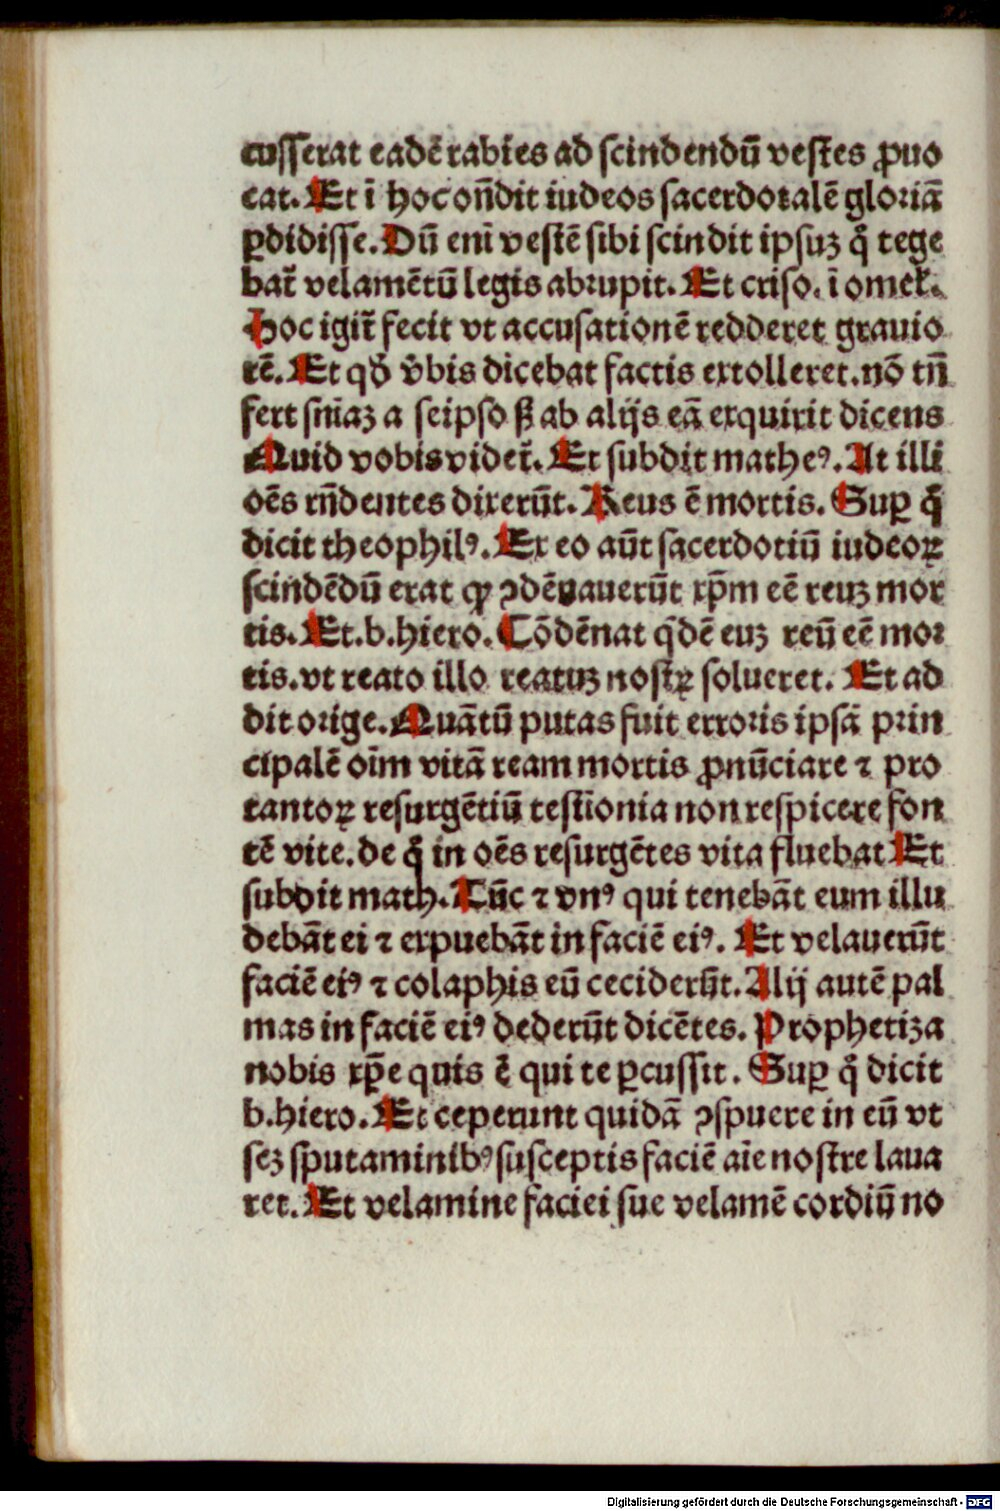 cusserat eadē rabies ad scindendū vestes ꝓuo
cat. Et ī hoc on̄dit iudeos sacerdotalē gloriā
ꝑdidisse. Dū enī vestē sibi scindit ipsuꝫ q̄ tege
bat̄ velamētū legis abrupit. Et criso. ī omel̄.
Hoc igit̄ fecit vt accusationē redderet grauio
rē. Et qď v̄bis dicebat factis extolleret. nō tn̄
fert sn̄iaꝫ a seipso sꝫ ab alijs eā exquirit dicens
Quid vobis videt̄. Et subdit matheꝰ. At illi
oēs rn̄dentes dixerūt. Reus ē mortis. Suꝑ q̄
dicit theophilꝰ. Ex eo aūt sacerdotiū iudeoꝝ
scindēdū erat qꝛ ꝯdēnauerūt xp̄m eē reuꝫ mor
tis. Et. b. hiero. Cōdēnat q̇dē euꝫ reū eē mor
tis. vt reato illo reatuꝫ nostꝝ solueret. Et ad
dit orige. Quātū putas fuit erroris ipsā prin
cipalē oīm vitā ream mortis ꝓnūciare ⁊ pro
tantoꝝ resurgētiū testīonia non respicere fon
tē vite. de q̄ in oēs resurgētes vita fluebat Et
subdit math. Tūc ⁊ vnꝰ qui tenebāt eum illu
debāt ei ⁊ expuebāt in faciē eiꝰ. Et velauerūt
faciē eiꝰ ⁊ colaphis eū ceciderūt. Alij autē pal
mas in faciē eiꝰ dederūt dicētes. Prophetiza
nobis xp̄e quis ē qui te ꝑcussit. Suꝑ q̄ dicit
b. hiero. Et ceperunt quidā ꝯspuere in eū vt
seꝫ sputaminibꝰ susceptis faciē aīe nostre laua
ret. Et velamine faciei sue velamē cordiū no
Digitalisierung gefördert durch die Deutsche Forschungsgemeinschaft - DFG